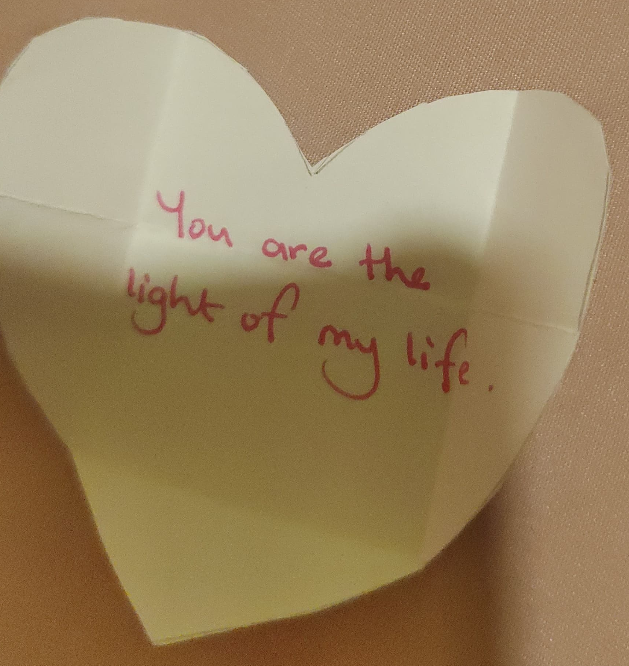 You are the
light of my life.